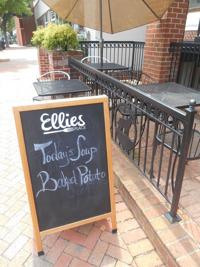 Ellies
PLACE
Today's Soup
Baked Potato